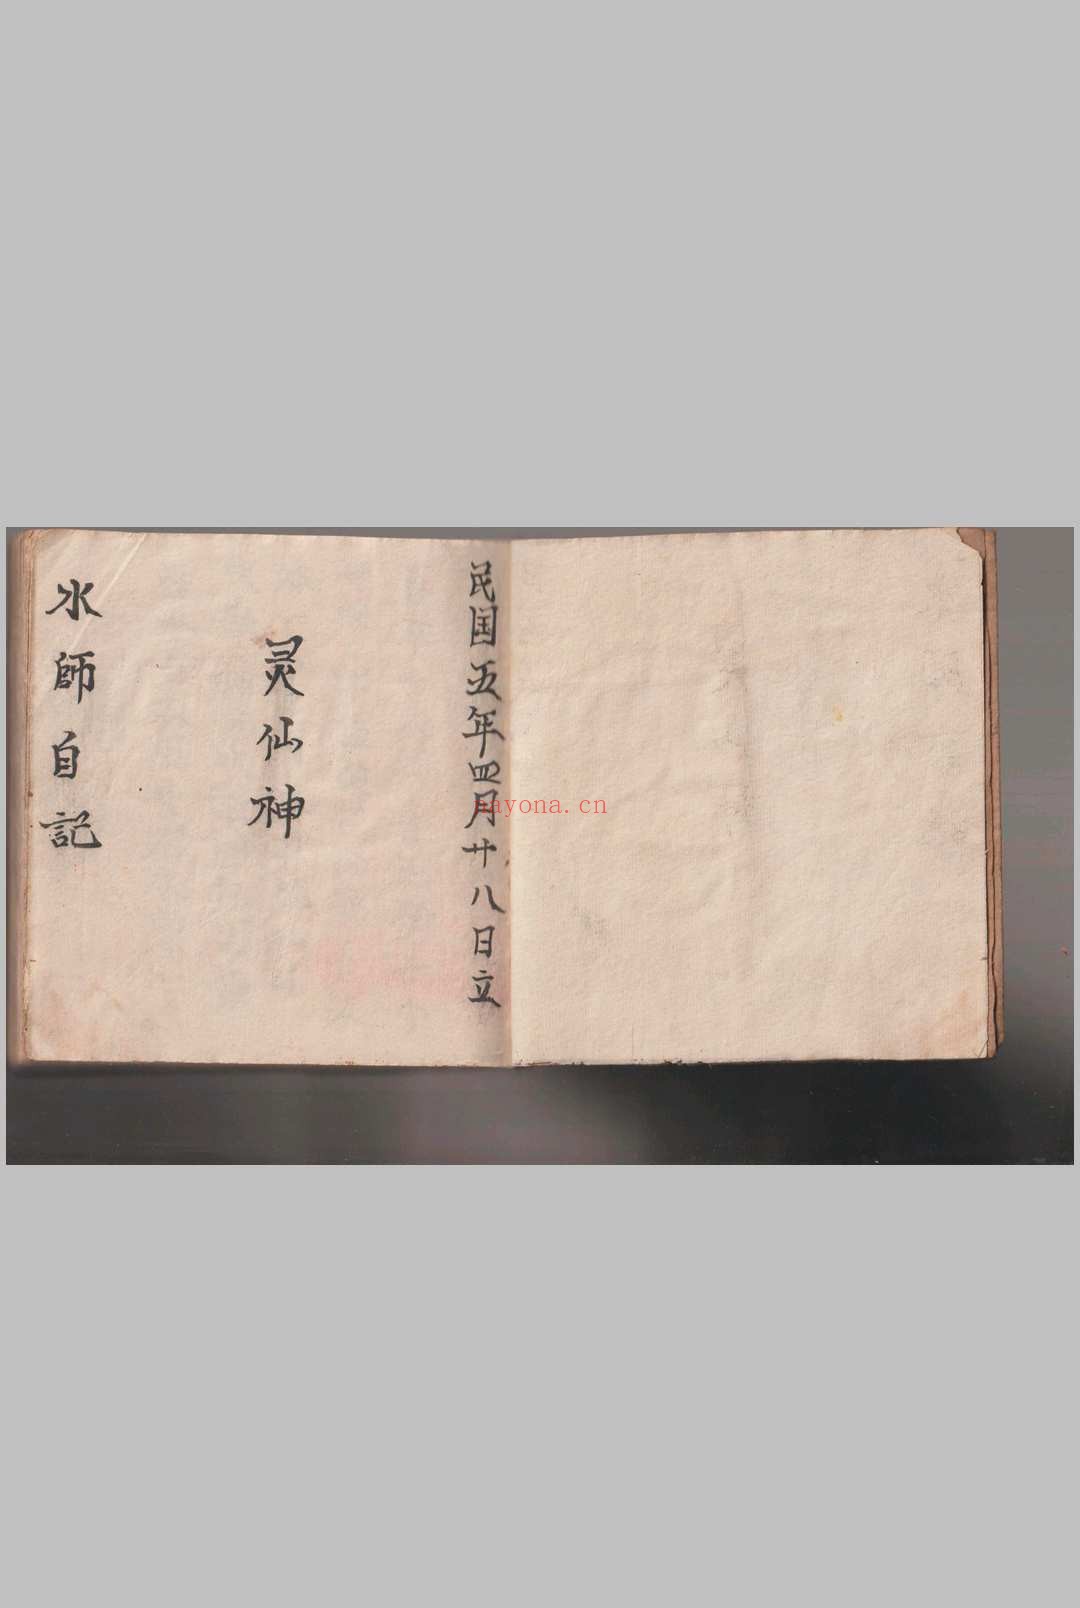 民国五年四月廿八日立
灵仙神
水師自記
nayona.cn